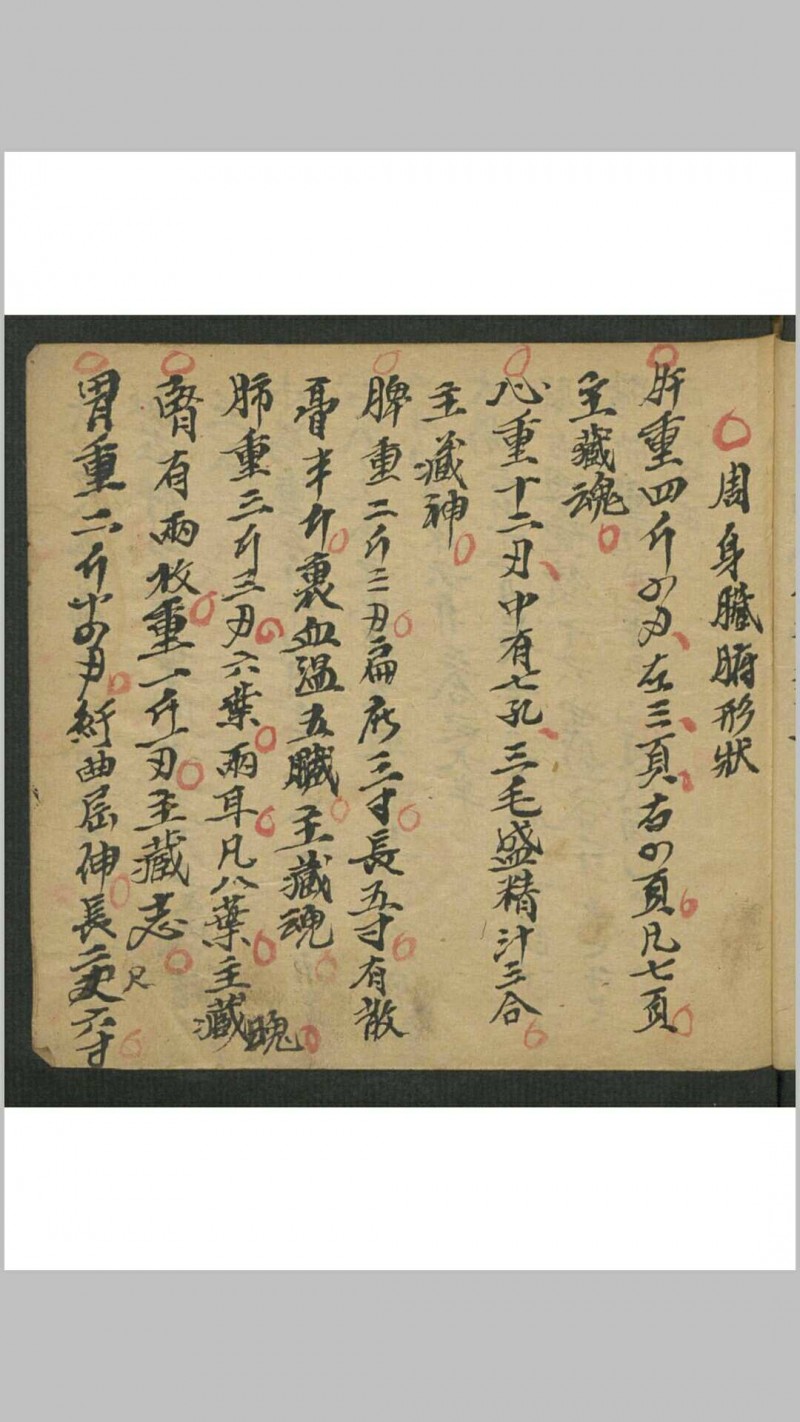 周身臟腑形狀
肝重四斤四刃在三頁右四頁凡七頁
主藏魂
心重十二刃中有七孔三毛盛精汁三合
主藏神
脾重二斤三刃扁広三寸長五寸有散
膏半斤裹血溫五臟主藏魂
肺重三斤三刃六葉兩耳凡八葉主藏魄
腎有兩枚重一斤一刃主藏志
胃重二斤十四刃紆曲屈伸長二尺六寸